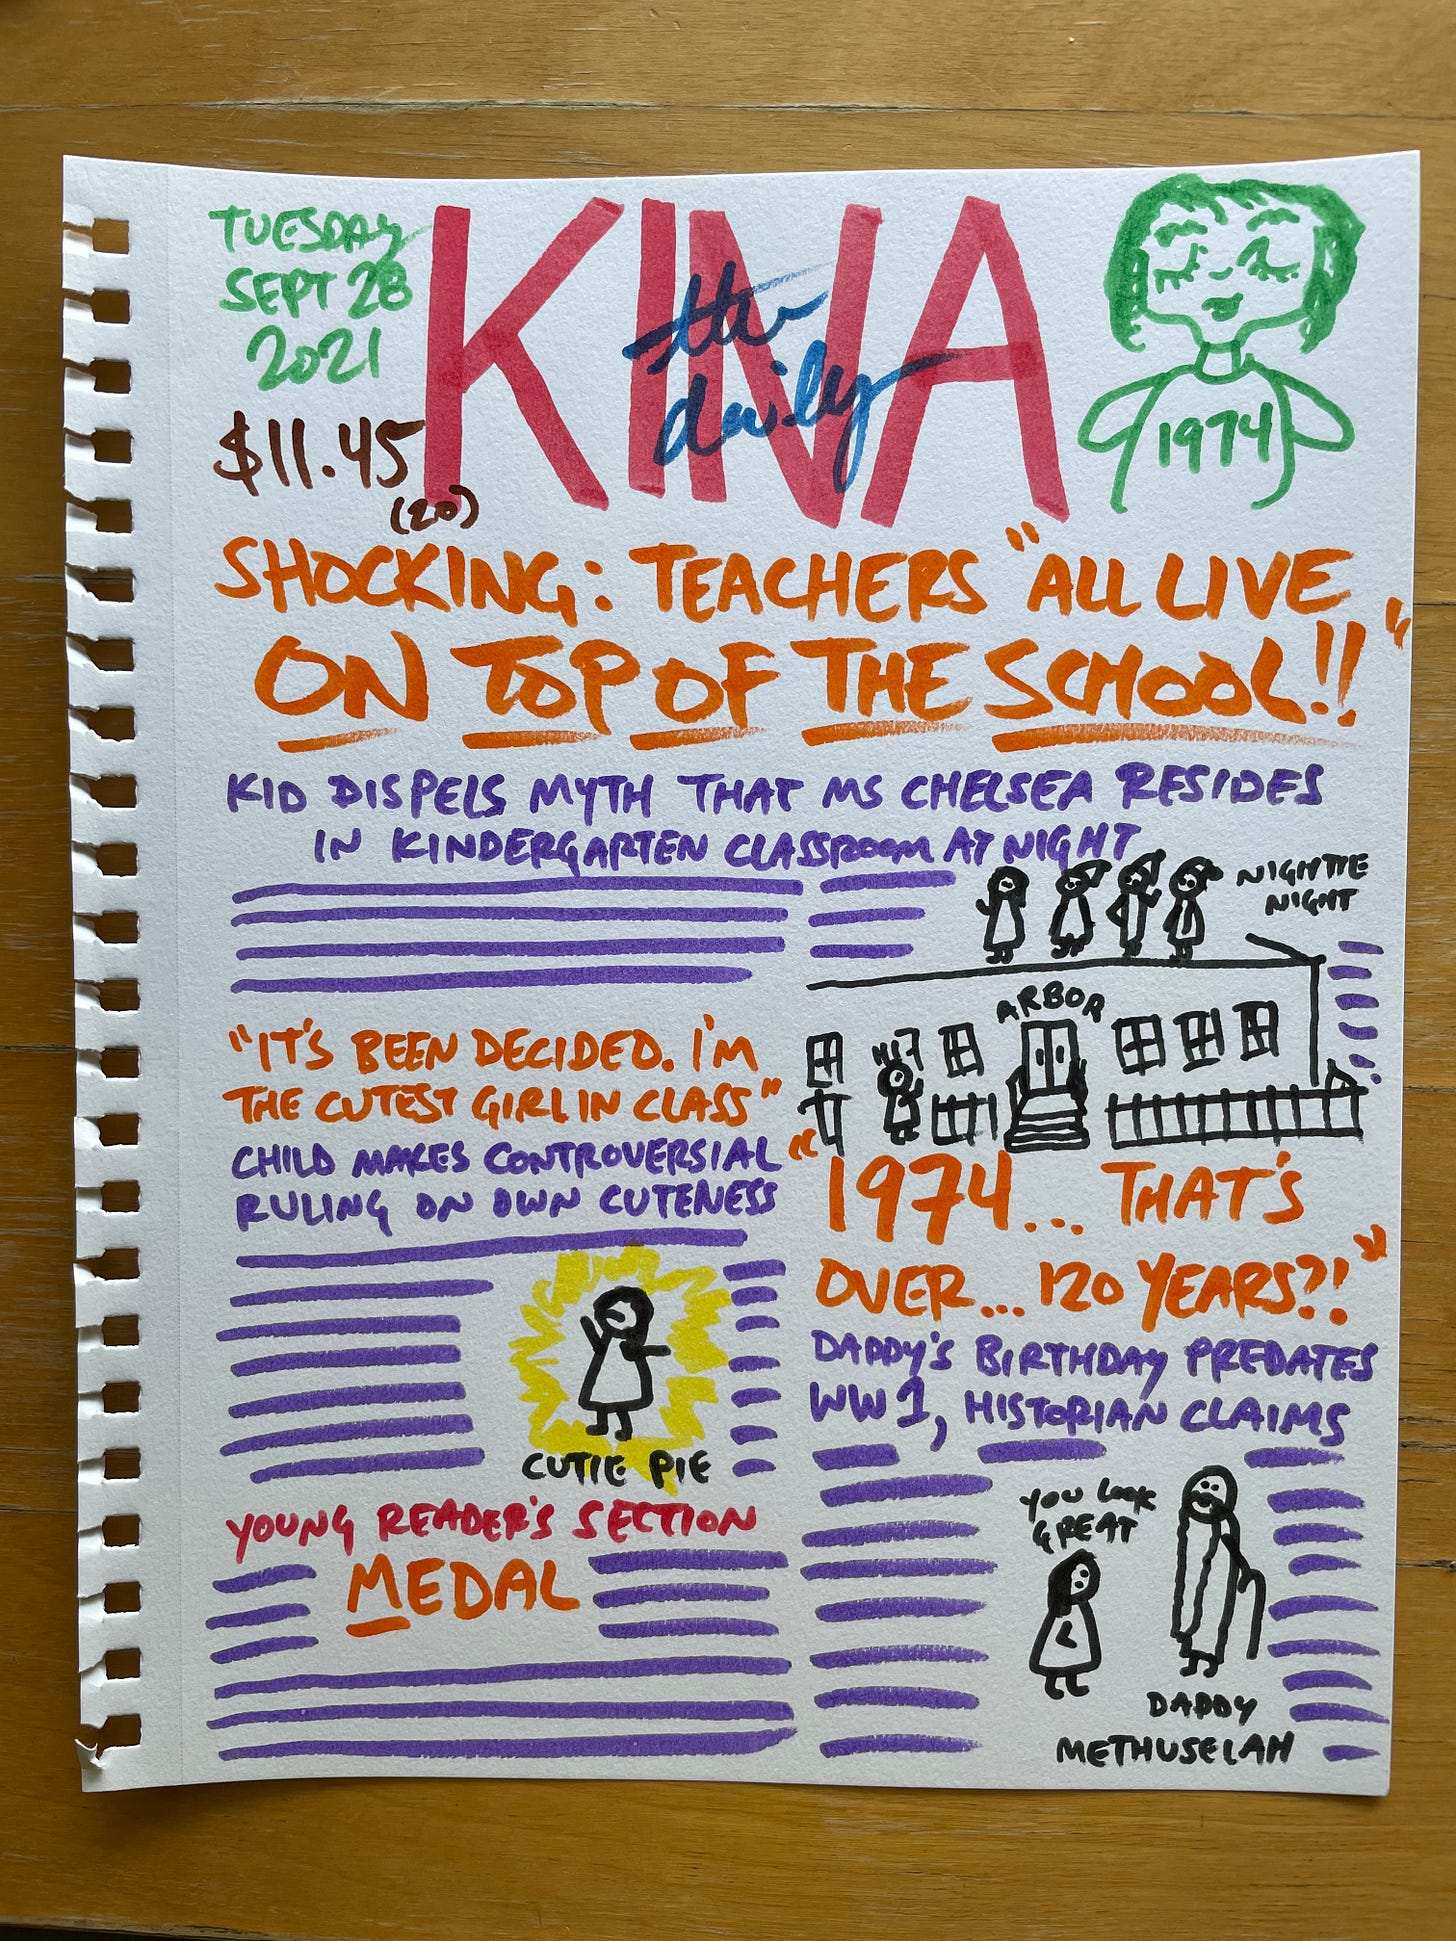 TUESDAY
SEPT 28
2021
$11.45
(20)
the
daily
KINA
1974
SHOCKING: TEACHERS "ALL LIVE
ON TOP OF THE SCHOOL!!"
KID DISPELS MYTH THAT MS CHELSEA RESIDES
IN KINDERGARTEN CLASSROOM AT NIGHT
NIGHTIE
NIGHT
ARBOR
HI
"IT'S BEEN DECIDED. I'M
THE CUTEST GIRL IN CLASS"
CHILD MAKES CONTROVERSIAL
RULING ON OWN CUTENESS
CUTIE PIE
YOUNG READER'S SECTION
MEDAL
"1974... THAT'S
OVER... 120 YEARS?!"
DADDY'S BIRTHDAY PREDATES
WW1, HISTORIAN CLAIMS
YOU LOOK
GREAT
DADDY
METHUSELAH